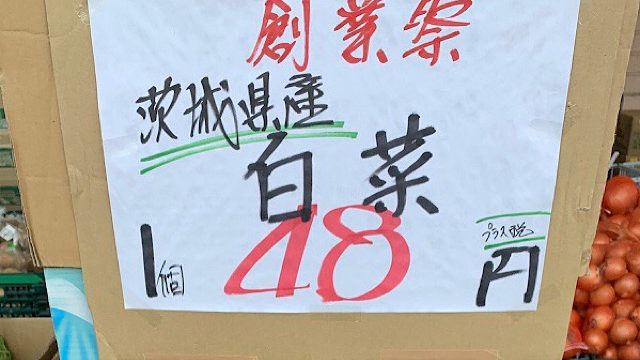 創業祭
茨城県産
白菜
1個 48 プラス税 円